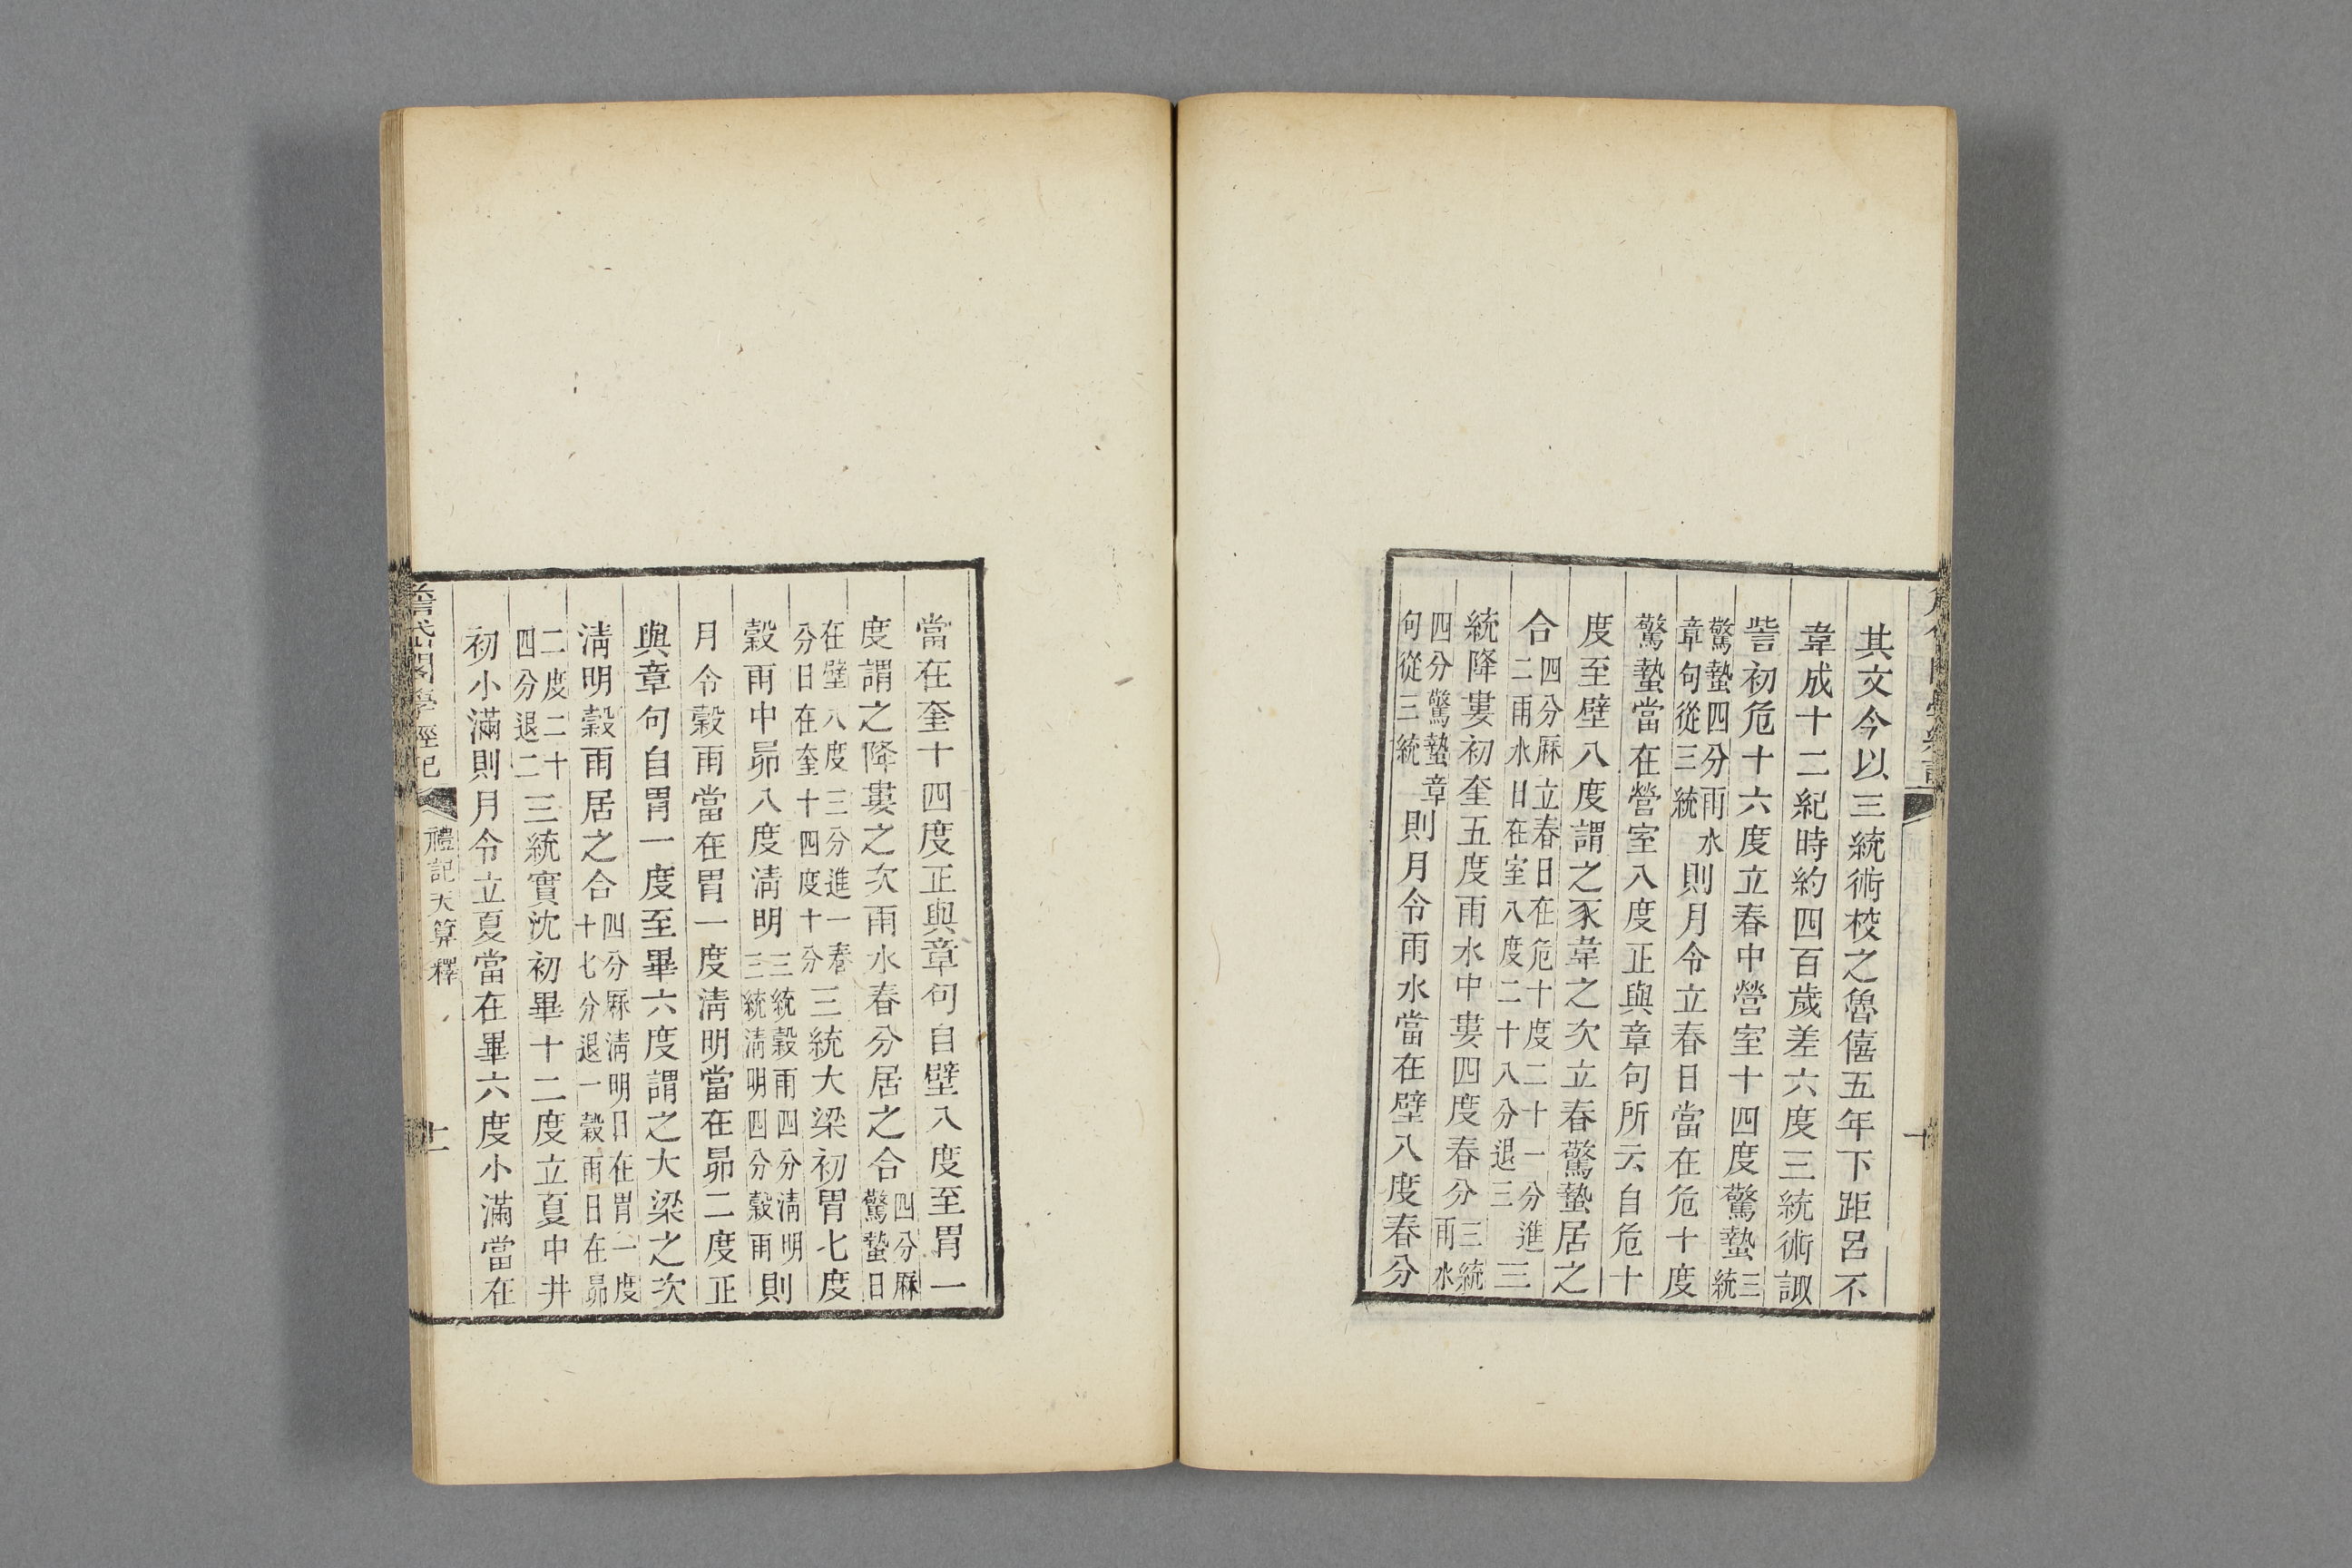 其文今以三統術校之魯僖五年下距呂不
韋成十二紀時約四百歲差六度三統術諏
訾初危十六度立春中營室十四度驚蟄三統
驚蟄四分雨水
章句從三統則月令立春日當在危十度
驚蟄當在營室八度正與章句所云自危十
度至壁八度謂之豕韋之次立春驚蟄居之
合四分厤立春日在危十度二十一分進
二雨水日在室八度二十八分退三三
統降婁初奎五度雨水中婁四度春分三統
雨水
四分驚蟄章
句從三統則月令雨水當在壁八度春分
當在奎十四度正與章句自壁八度至胃一
度謂之降婁之次雨水春分居之合四分厤
驚蟄日
在壁八度三分進一春
分日在奎十四度十分三統大梁初胃七度
穀雨中昴八度清明三統穀雨四分清明
三統清明四分穀雨則
月令穀雨當在胃一度清明當在昴二度正
與章句自胃一度至畢六度謂之大梁之次
清明穀雨居之合四分厤清明日在胃一度
十七分退一穀雨日在昴
二度二十
四分退二三統實沈初畢十二度立夏中井
初小滿則月令立夏當在畢六度小滿當在
禮記天算釋
十一